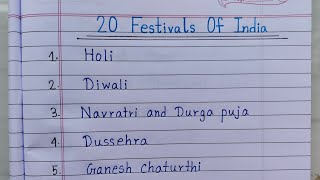 20 Festivals Of India
1. Holi
2. Diwali
3. Navratri and Durga puja
4. Dussehra
5. Ganesh chaturthi